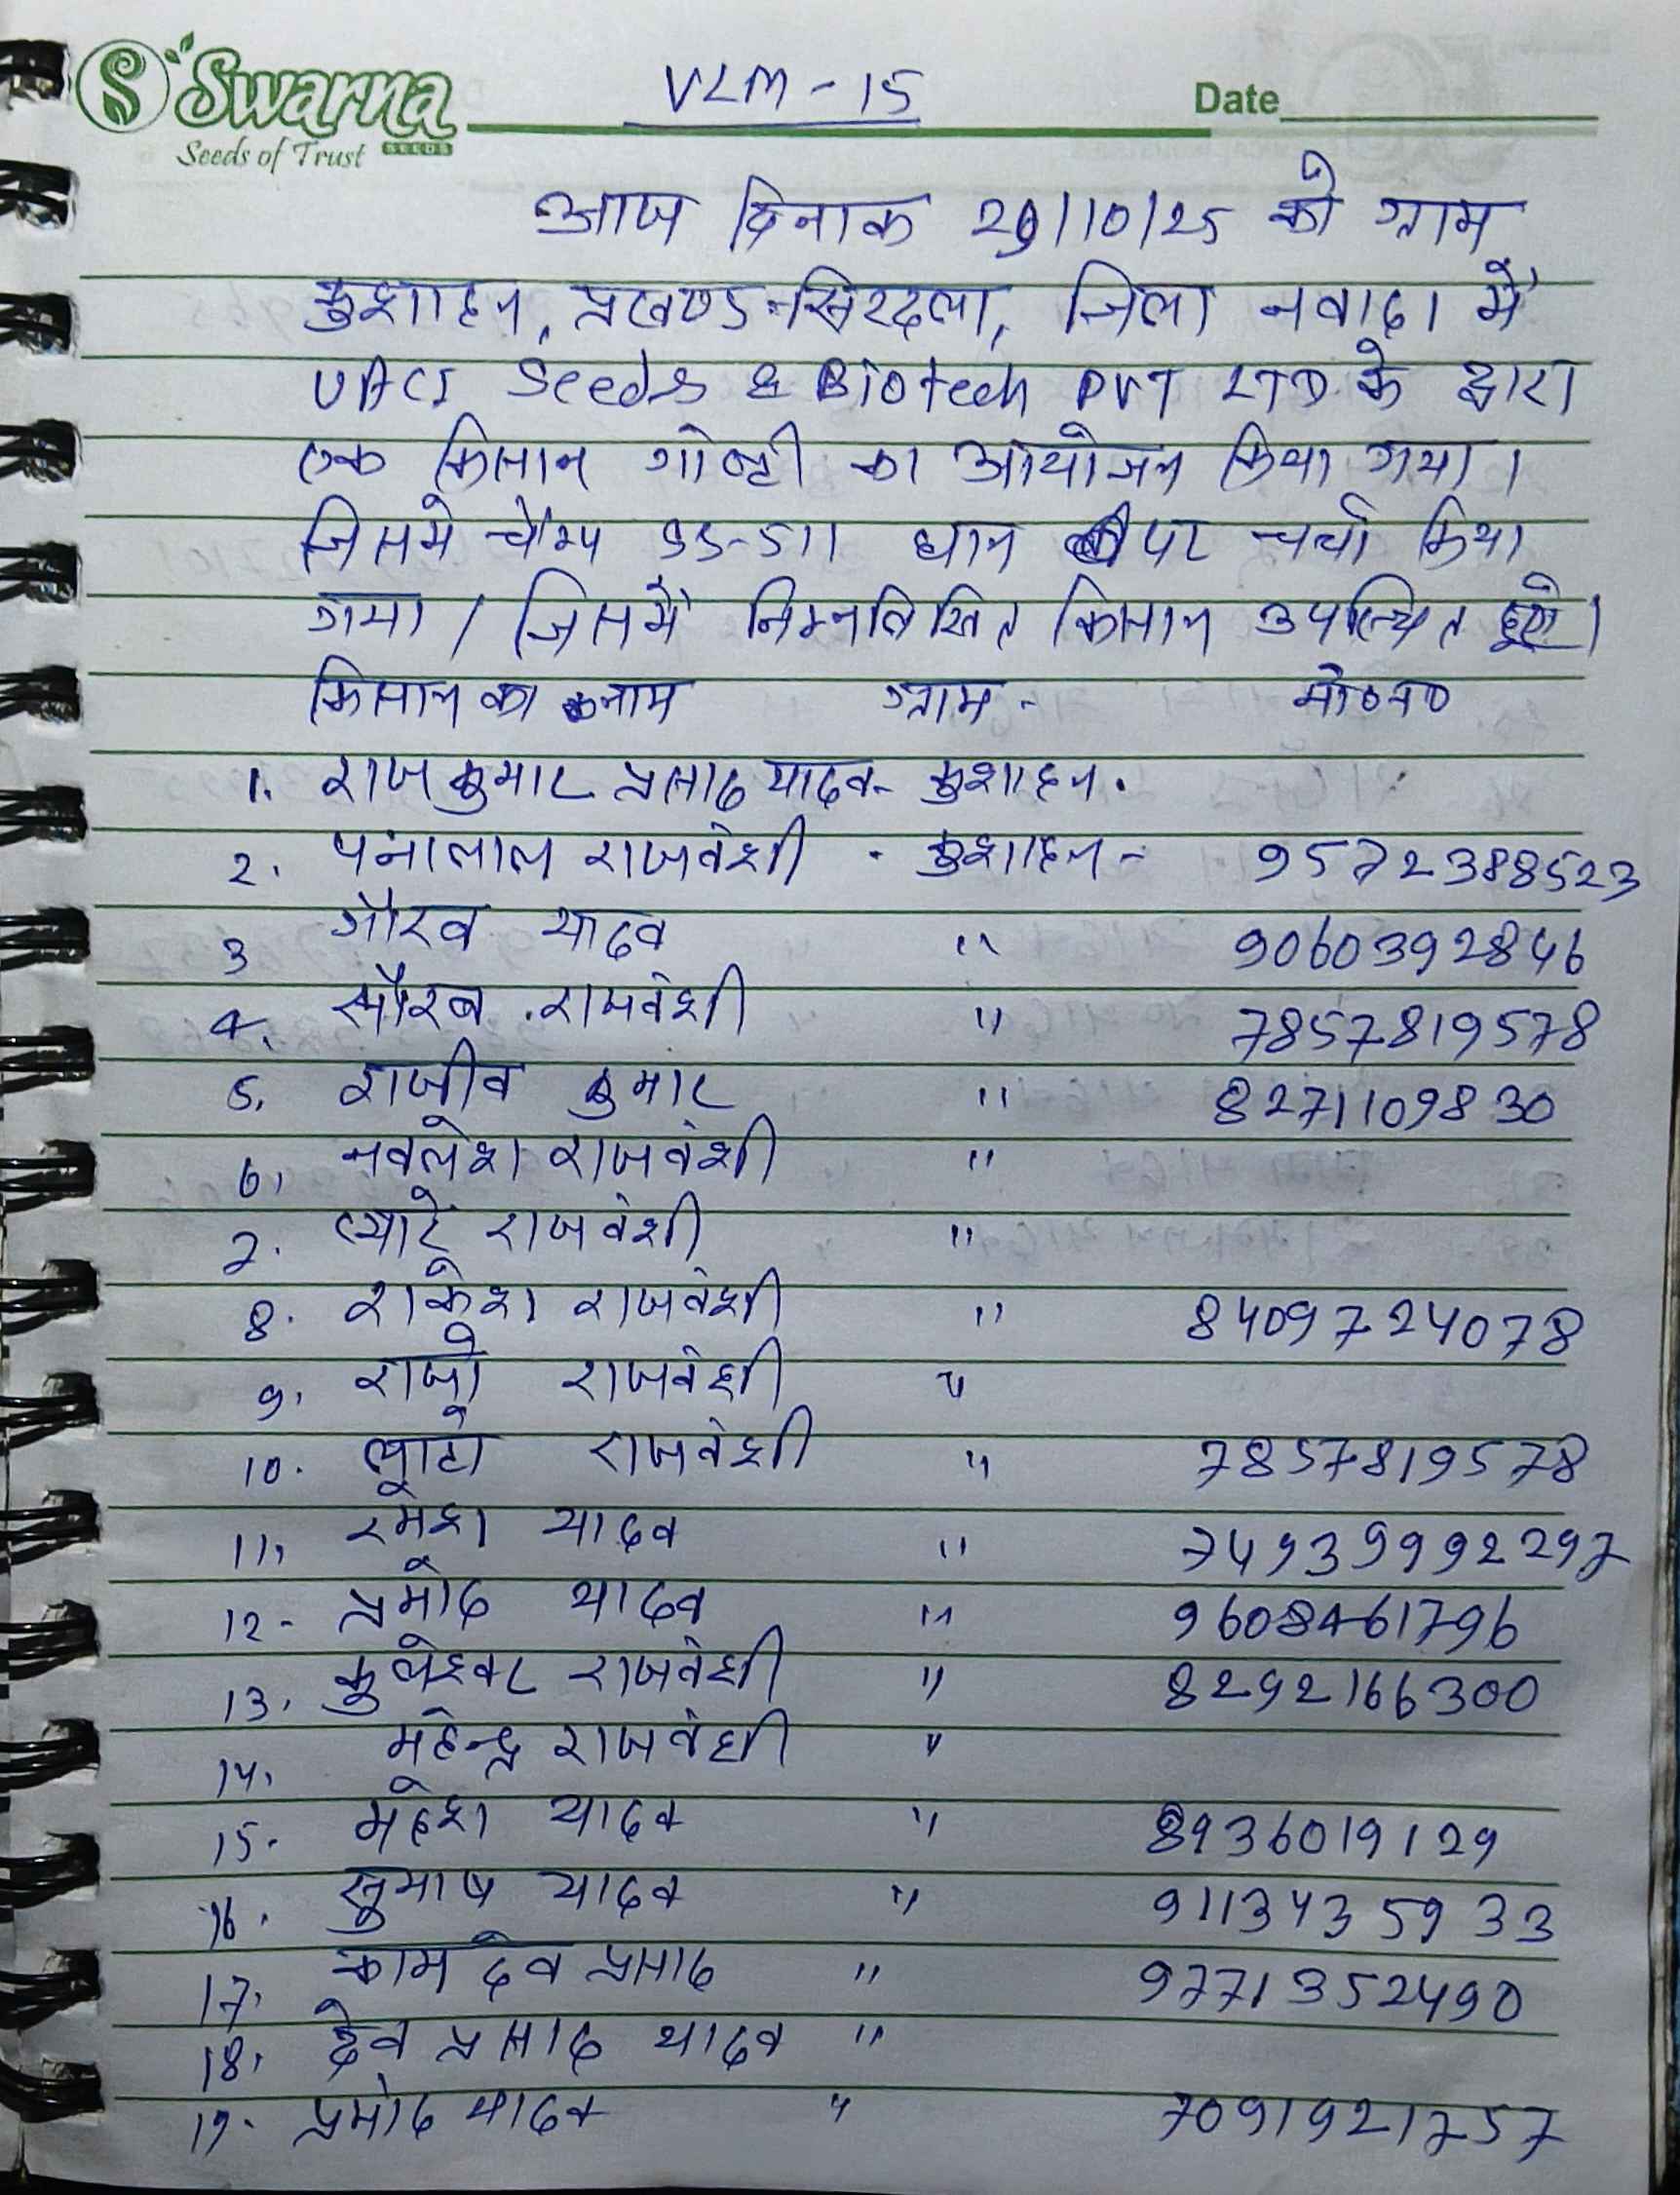 Swarna
SEEDS
Seeds of Trust
VLM - 15
Date
आज दिनाक 29/10/25 को ग्राम
कुशाहन, प्रखण्ड-सिरदला, जिला नवादा में
Seeds & Biotech PVT LTD के द्वारा
एक किसान गोष्टी का आयोजन किया गया।
जिसमे चैम्प SS-511 धान पर चर्चा किया
गया / जिसमें निम्नलिखित किसान उपस्थित हुए।
किसान का नाम ग्राम - मो०न०
1. राजकुमार प्रसाद यादव - कुशाहन.
2. पनालाल राजवंशी - कुशाहन - 9572388523
3 गौरव यादव " 9060392846
4. सौरव राजवंशी " 7857819578
5. राजीव कुमार " 8271109830
6, नवलेश राजवंशी "
7. प्यारे राजवंशी "
8. राकेश राजवंशी " 8409724078
9. राजो राजवंशी "
10. राजवंशी " 7857819578
11, रमेश यादव " 74939992297
12- प्रमोद यादव " 9608461796
13, राजवंशी " 8292166300
14, महेन्द्र राजवंशी "
15. महेश यादव " 8936019129
16. सुभाष यादव " 9113435933
17, कामदेव प्रसाद " 9771352490
18, देव प्रसाद यादव "
19. प्रमोद यादव " 7091921757